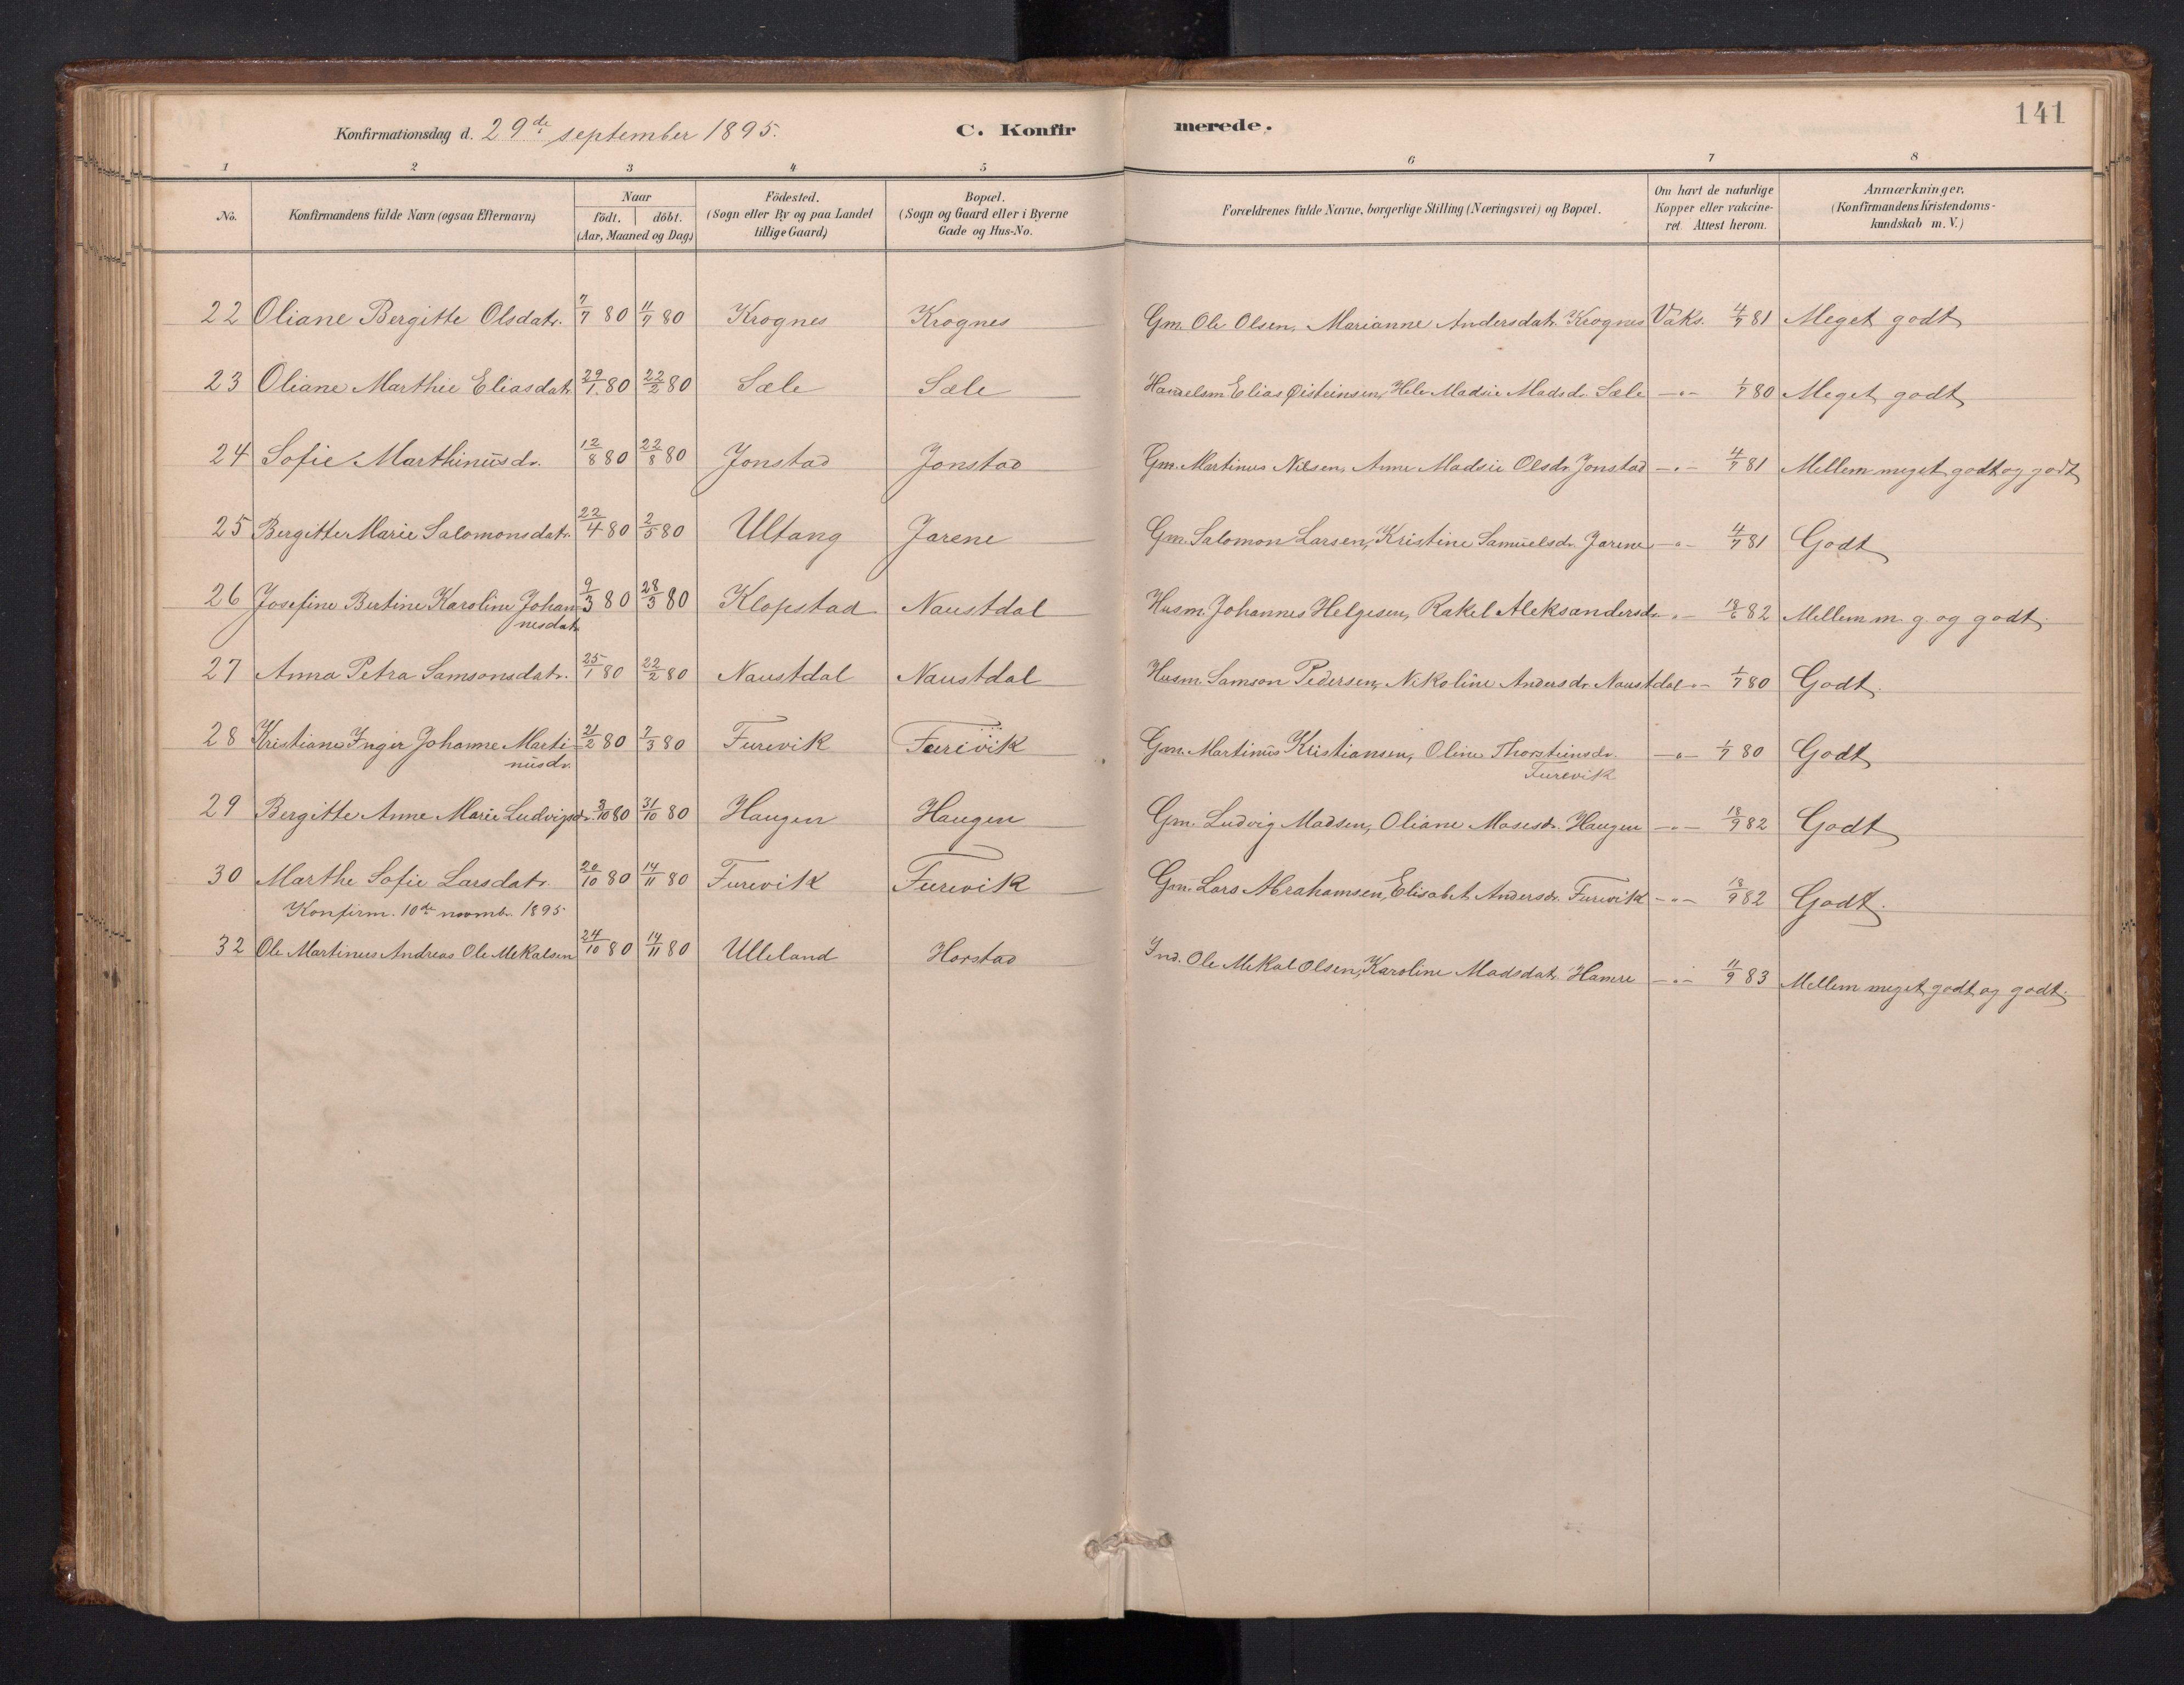 141
Konfirmationsdag d. 29de september 1895. C. Konfirmerede.
1 2 3 4 5 6 7 8
No. Konfirmandens fulde Navn (ogsaa Efternavn) Naar födt. döbt. (Aar, Maaned og Dag) Födested. (Sogn eller By og paa Landet tillige Gaard) Bopæl. (Sogn og Gaard eller i Byerne Gade og Hus-No. Forældrenes fulde Navne, borgerlige Stilling (Næringsvei) og Bopæl. Om havt de naturlige Kopper eller vakcineret. Attest herom. Anmærkninger. (Konfirmandens Kristendomskundskab m. V.)
22 Oliane Bergitte Olsdatr. 7/7 80 11/7 80 Krognes Krognes Gm. Ole Olsen, Marianne Andersdatr. Krognes Vaks. 4/7 81 Meget godt
23 Oliane Marthie Eliasdatr. 29/1 80 22/2 80 Sæle Sæle Handelsm. Elias Øisteinsen, Hele Madsie Madsd. Sæle —"— 1/7 80 Meget godt
24 Sofie Marthinusdr. 12/8 80 22/8 80 Jonstad Jonstad Gm. Martinus Nilsen, Anne Madsie Olsdr. Jonstad —"— 4/7 81 Mellem meget godt og godt
25 Bergitte Marie Salomonsdatr. 22/4 80 2/5 80 Ultang Jarene Gm. Salomon Larsen, Kristine Samuelsdr. Jarene —"— 4/7 81 Godt
26 Josefine Bertine Karoline Johan= 9/3 80 28/3 80 Klopstad Naustdal Husm. Johannes Helgesen, Rakel Aleksandersdr. —"— 18/6 82 Mellem m. g. og godt.
nesdatr
27 Anna Petra Samsonsdatr. 25/1 80 22/2 80 Naustdal Naustdal Husm. Samson Pedersen, Nikoline Andersdr. Naustdal —"— 1/7 80 Godt.
28 Kristiane Inger Johanne Marti= 21/2 80 7/3 80 Furevik Furevik Gm. Martinus Kristiansen, Oline Thorsteinsdr. —"— 1/7 80 Godt
nusdr. Furevik
29 Bergitte Anne Marie Ludvigsdr. 3/10 80 31/10 80 Haugen Haugen Gm. Ludvig Madsen, Oliane Mosesdr. Haugen —"— 18/9 82 Godt
30 Marthe Sofie Larsdatr. 20/10 80 14/11 80 Furevik Furevik Gm. Lars Abrahamsen, Elisabet Andersdr. Furevik —"— 18/9 82 Godt.
Konfirm. 10de novemb. 1895
32 Ole Martinus Andreas Ole Mekalsen 24/10 80 14/11 80 Ulleland Horstad Ind. Ole Mekal Olsen, Karoline Madsdatr. Hamre —"— 11/9 83 Mellem meget godt og godt.